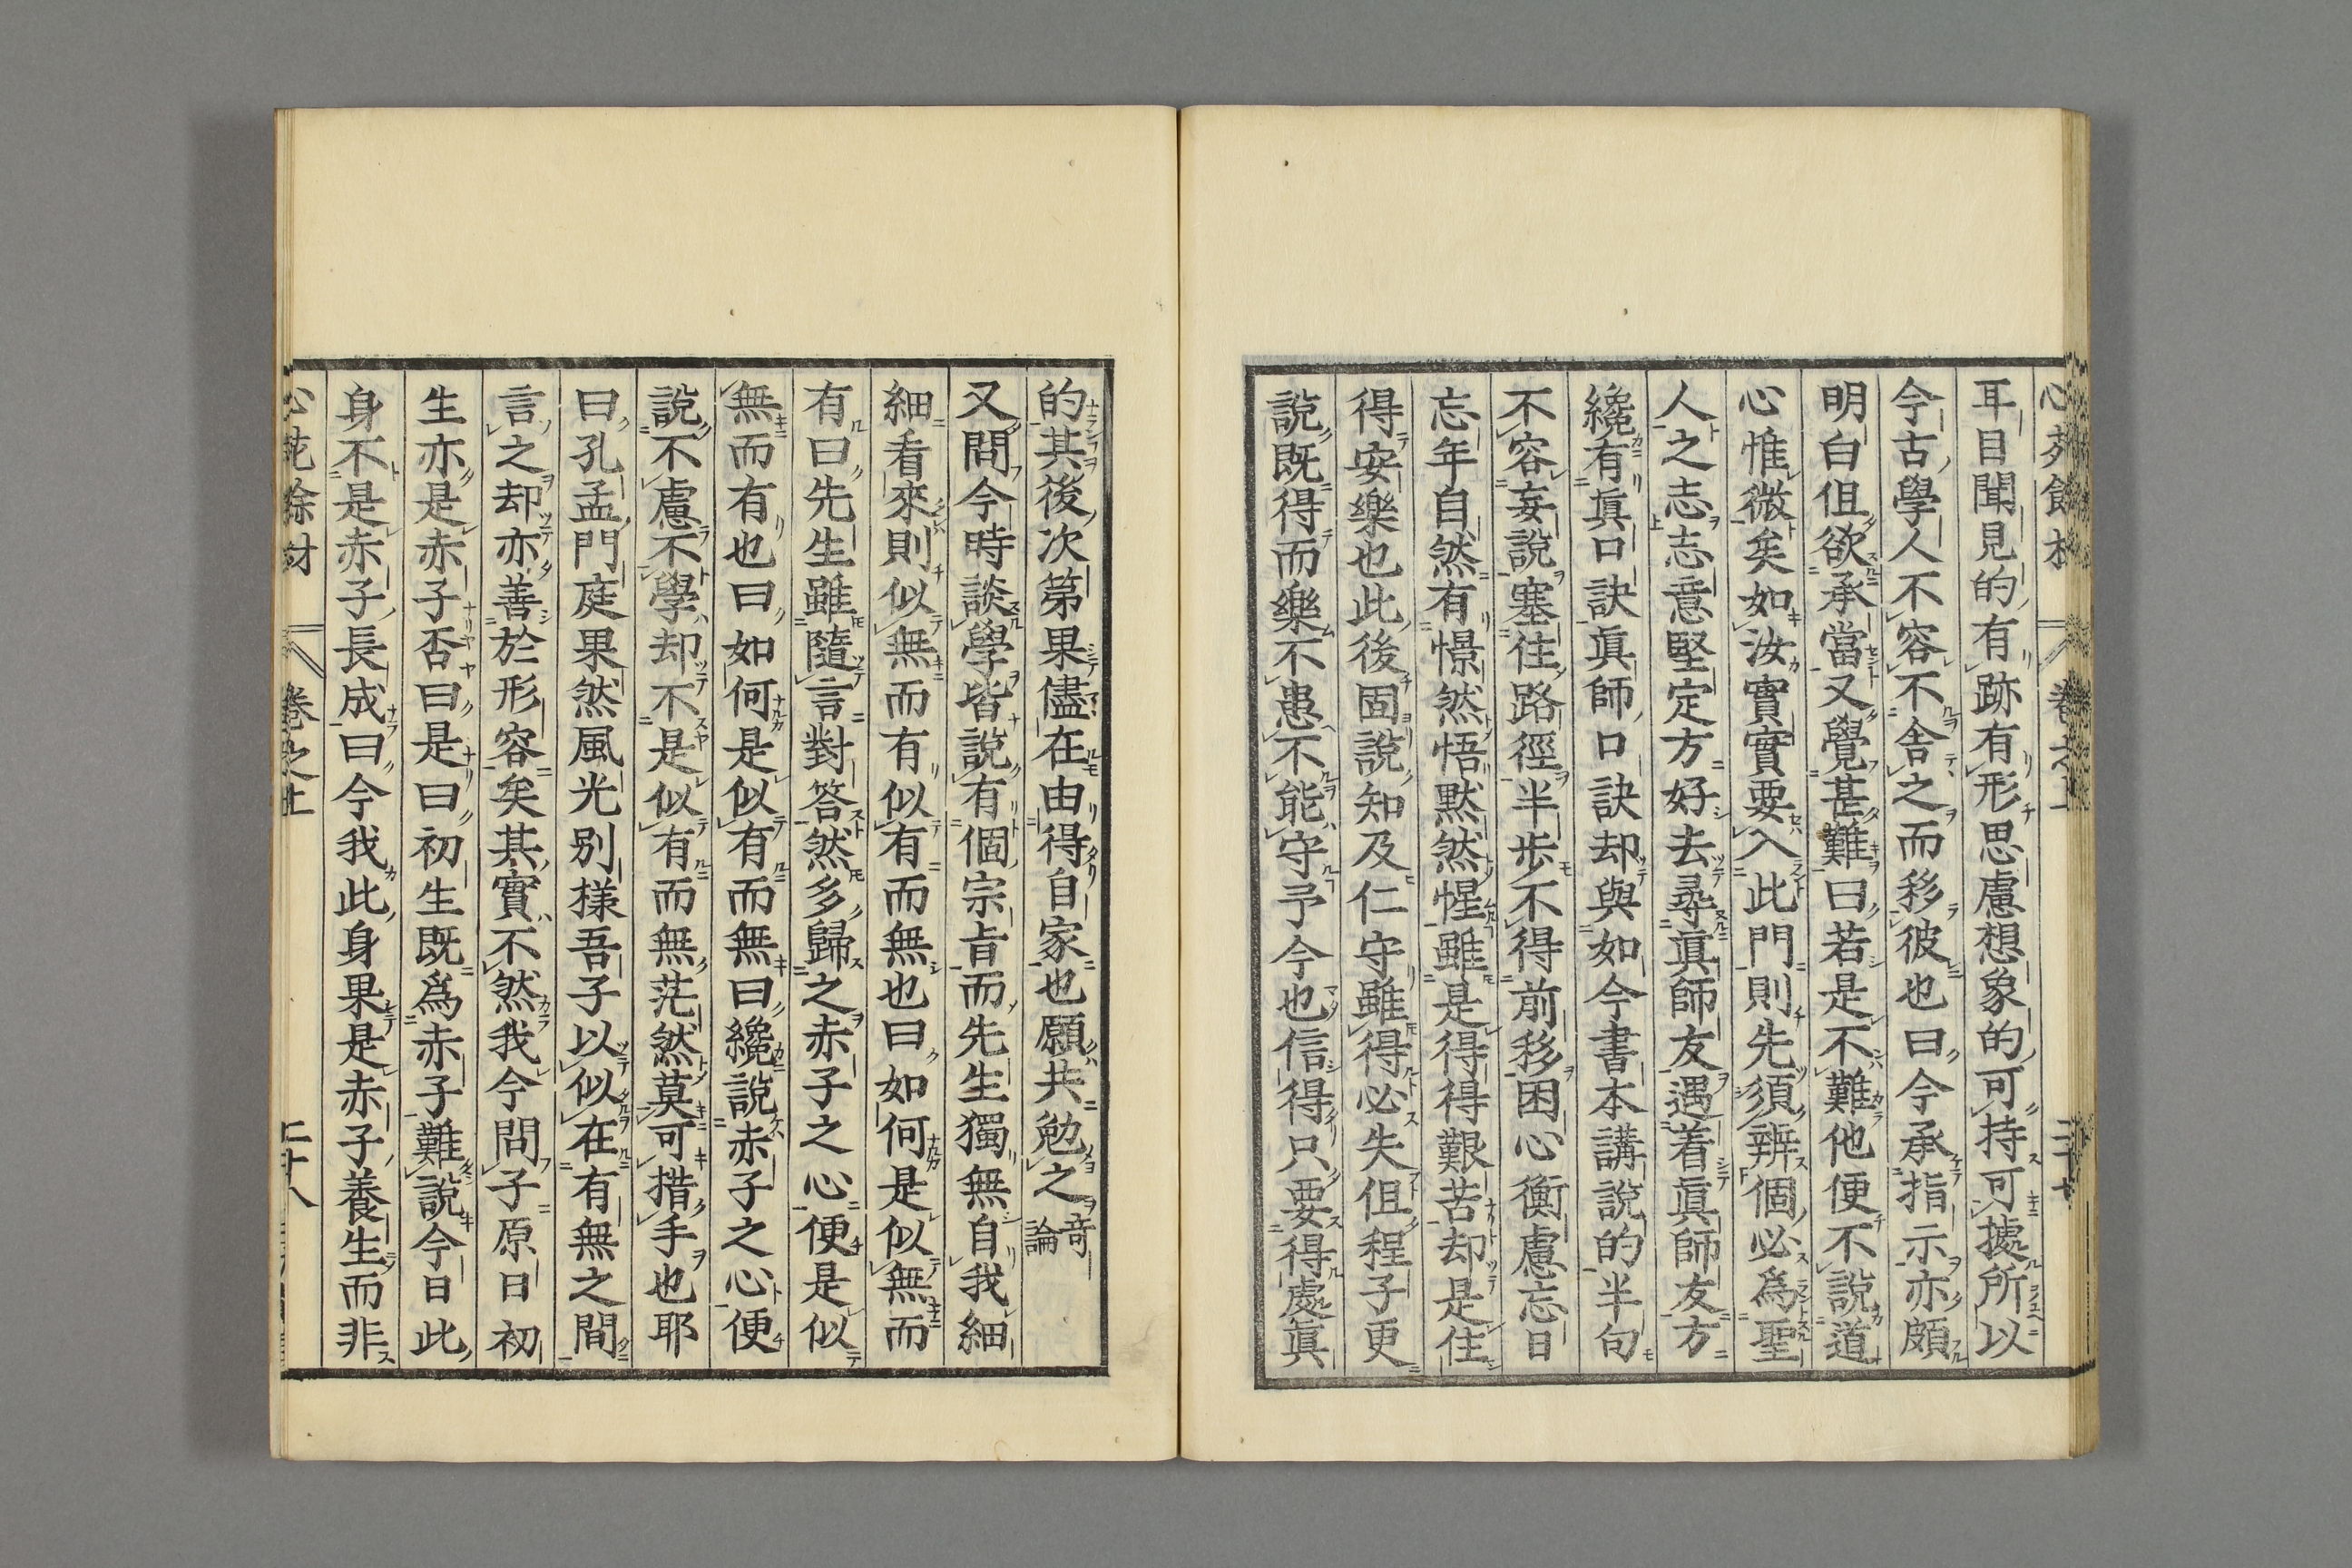 耳目聞見的有跡有形思慮想象的可持可據所以
今古學人不容不舍之而移彼也曰今承指示亦頗
明白但欲承當又覺甚難曰若是不難他便不說道
心惟微矣如汝實實要入此門則先須辨個必爲聖
人之志志意堅定方好去尋眞師友遇着眞師友方
纔有眞口訣眞師口訣却與如今書本講說的半句
不容妄說塞住路徑半步不得前移困心衡慮忘日
忘年自然有憬然悟黙然惺雖是得得艱苦却是住
得安樂也此後固說知及仁守雖得必失但程子更
說既得而樂不患不能守予今也信得只要得處眞
的其後次第果儘在由得自家也願共勉之奇論
又問今時談學皆說有個宗旨而先生獨無自我細
細看來則似無而有似有而無也曰如何是似無而
有曰先生雖隨言對答然多歸之赤子之心便是似
無而有也曰如何是似有而無曰纔說赤子之心便
說不慮不學却不是似有而無茫然莫可措手也耶
曰孔孟門庭果然風光別樣吾子以似在有無之間
言之却亦善於形容矣其實不然我今問子原日初
生亦是赤子否曰是曰初生既爲赤子難說今日此
身不是赤子長成曰今我此身果是赤子養生而非
餘材 卷之上 二十八